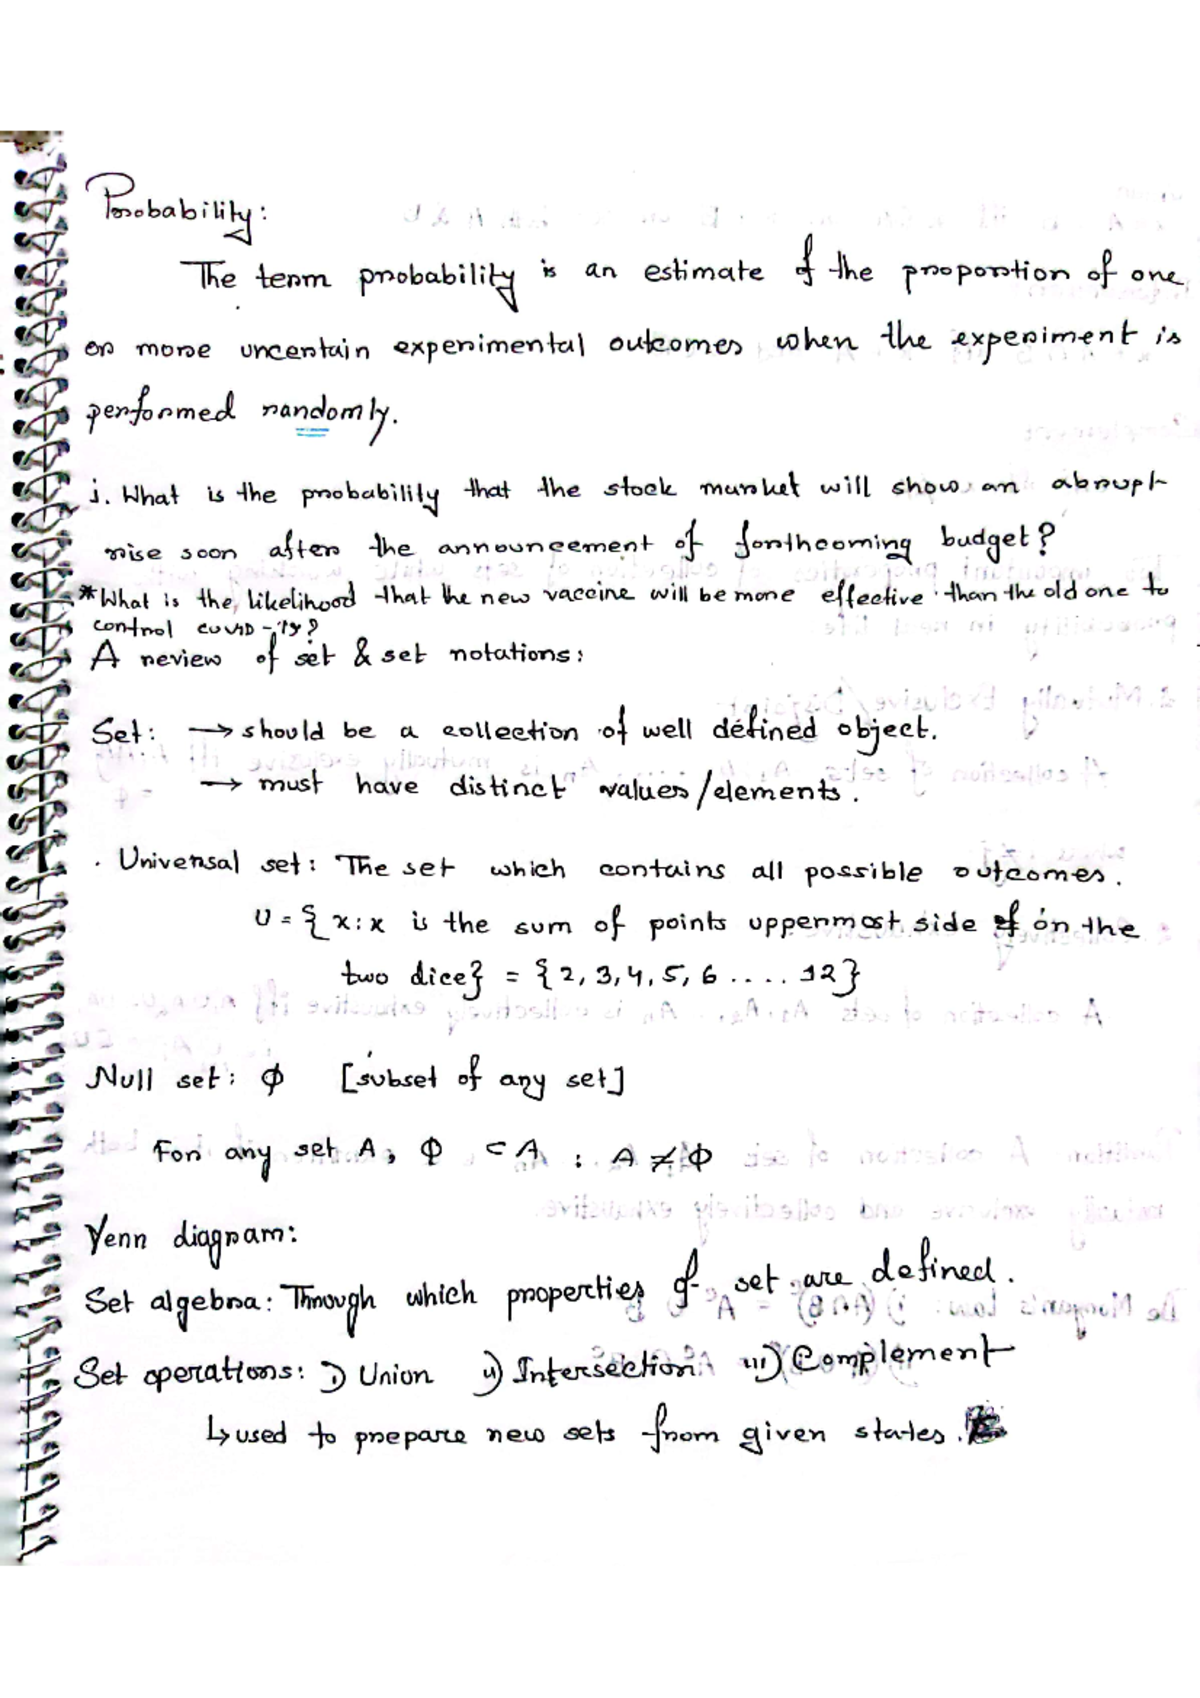 Probability:
The term probability is an estimate of the proportion of one
or more uncertain experimental outcomes when the experiment is
performed randomly.
i. What is the probability that the stock market will show an abrupt
rise soon after the announcement of forthcoming budget?
*What is the likelihood that the new vaccine will be more effective than the old one to
control covid-19?
A review of set & set notations:
Set: → should be a collection of well defined object.
→ must have distinct values/elements.
. Universal set: The set which contains all possible outcomes.
U = {x:x is the sum of points uppermost side on the
two dice} = {2, 3, 4, 5, 6 .... 12}
Null set: Φ [subset of any set]
For any set A, Φ ⊂ A : A ≠ Φ
Venn diagram:
Set algebra: Through which properties of set are defined.
Set operations: i) Union ii) Intersection iii) Complement
↳ used to prepare new sets from given states.